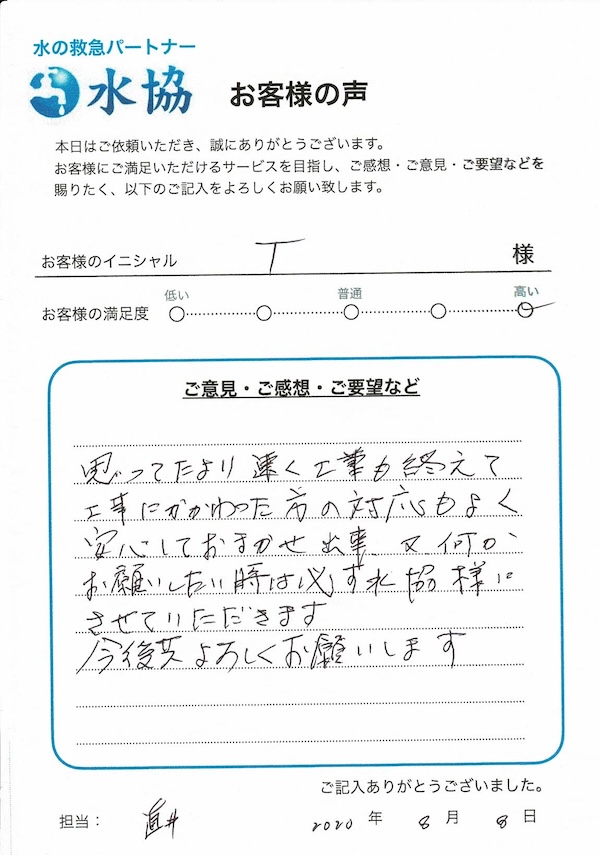 水の救急パートナー
水協 お客様の声
本日はご依頼いただき、誠にありがとうございます。
お客様にご満足いただけるサービスを目指し、ご感想・ご意見・ご要望などを
賜りたく、以下のご記入をよろしくお願い致します。
お客様のイニシャル T 様
低い 普通 高い
お客様の満足度
ご意見・ご感想・ご要望など
思ってたより速く工事も終えて
工事にかかわった方の対応もよく
安心しておまかせ出来、又、何か
お願いしたい時は必ず水協様に
させていただきます
今後共よろしくお願いします
ご記入ありがとうございました。
担当： 直井 2020 年 8 月 8 日